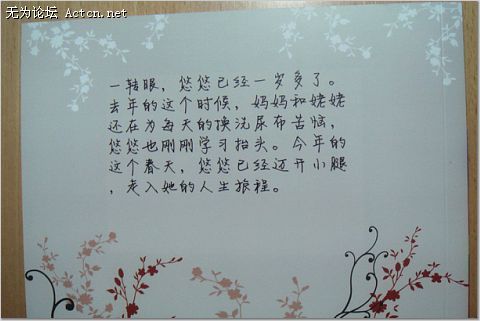 无为论坛 Actcn.net
一转眼，悠悠已经一岁多了。
去年的这个时候，妈妈和姥姥
还在为每天的换洗尿布苦恼，
悠悠也刚刚学习抬头。今年的
这个春天，悠悠已经迈开小腿
，走入她的人生旅程。